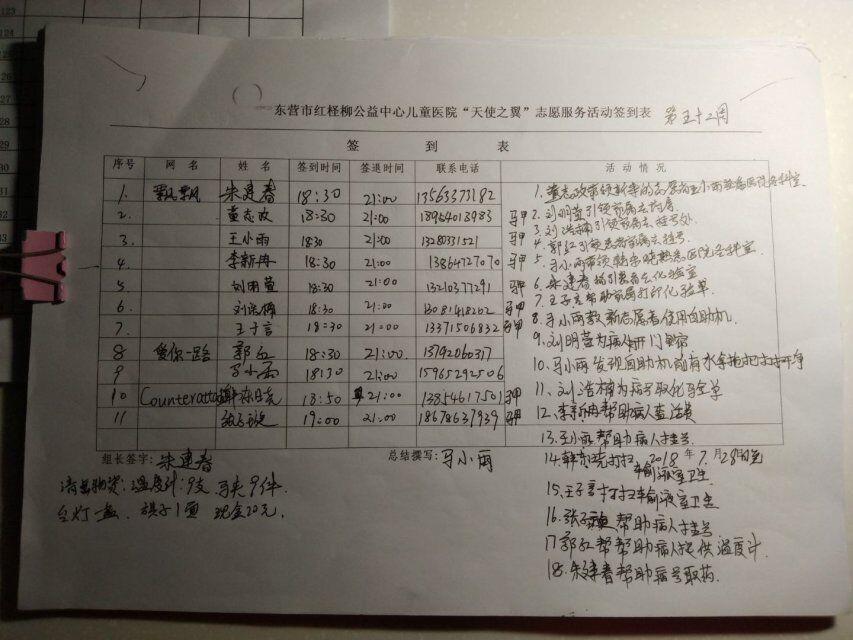 东营市红柽柳公益中心儿童医院“天使之翼”志愿服务活动签到表 第五十二周
签 到 表
序号 网 名 姓 名 签到时间 签退时间 联系电话 活 动 情 况
1. 飘飘 朱建春 18:30 21:00 13563373182
2. 董志政 18:30 21:00 18954013983 马甲
3. 王小雨 18:30 21:00 13280331521 马甲
4. 李新冉 18:30 21:00 13864727070 马甲
5. 刘明萱 18:30 21:00 13210377291 马甲
6. 刘浩楠 18:30 21:00 13081418202 马甲
7. 王子言 18:30 21:00 13371506832 马甲
8 爱你一路 郭红 18:30 21:00. 13792060317
9 马小雨 18:30 21:00 15965292506
10 18:50 21:00 13854617501 马甲
11 19:00 21:00 18678637939 马甲
1. 董志政带领新来的志愿者王小雨熟悉医院各科室.
2. 刘明萱引领家属去药房.
3. 刘浩楠引领家属去挂号处.
4. 郭红引领患者家属去挂号.
5. 马小雨带领韩东晓熟悉医院各科室.
6. 朱建春指引患者去化验室
7. 王子言帮助家属打印化验单
8. 马小雨教新志愿者使用自助机
9. 刘明萱为病人开门
10. 马小雨发现自助机前有水拿拖把打扫干净
11. 刘浩楠为病号取化验单
12. 李新冉帮助病人
13. 王小雨帮助病人挂号
14. 韩东晓打扫输液室卫生
15. 王子言打扫输液室卫生
16. 帮助病人挂号
17 郭红帮帮助病人提供温度计.
18. 朱建春帮助病号取药.
组长签字: 朱建春 总结撰写: 马小雨 2018 年 7 月 28日
清点物资: 温度计: 9支 马夹9件.
台灯一盏. 旗子1面 现金20元.